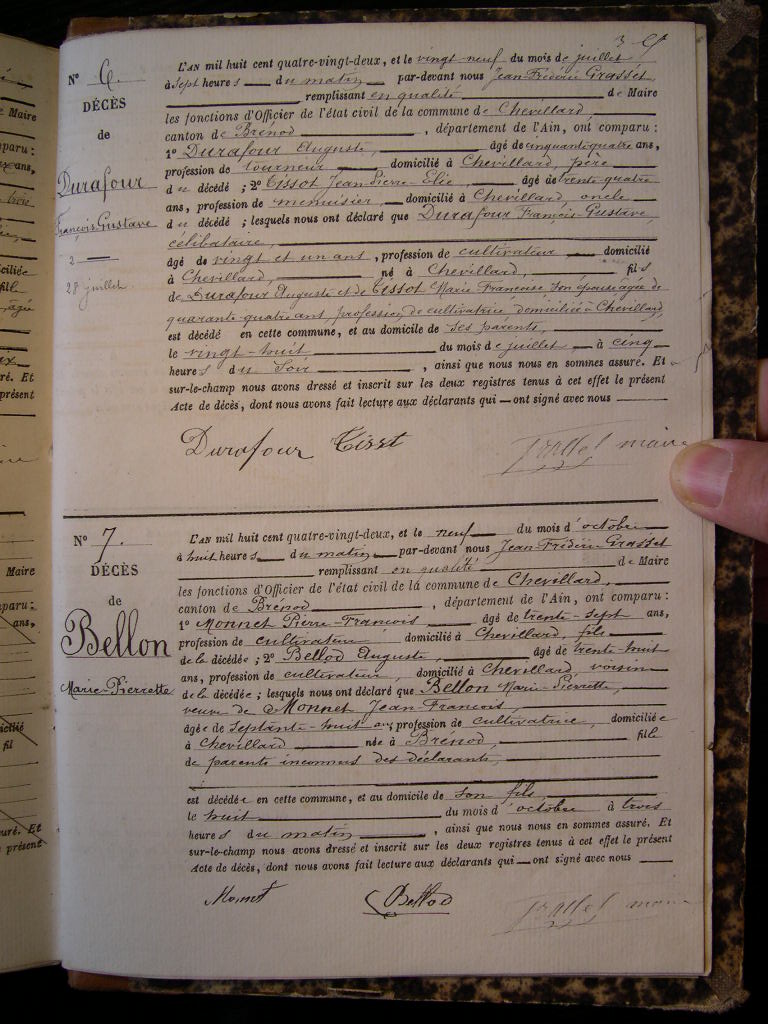 3
N° 6.
DÉCÈS
de
Durafour
François Gustave
2
28 juillet
L'AN mil huit cent quatre-vingt-deux, et le vingt neuf du mois de juillet
à sept heures du matin par-devant nous Jean-Frédéric Grasset,
remplissant en qualité de Maire
les fonctions d'Officier de l'état civil de la commune de Chevillard,
canton de Brénod, département de l'Ain, ont comparu :
1° Durafour Auguste, âgé de cinquante quatre ans,
profession de tourneur domicilié à Chevillard, père
du décédé ; 2° Tissot Jean-Pierre-Elie, âgé de trente quatre
ans, profession de menuisier, domicilié à Chevillard, oncle
du décédé ; lesquels nous ont déclaré que Durafour François-Gustave,
célibataire,
âgé de vingt et un ans, profession de cultivateur domicilié
à Chevillard, né à Chevillard, fils
de Durafour Auguste et de Tissot Marie Françoise son épouse âgée de
quarante-quatre ans, profession de cultivatrice, domiciliée à Chevillard,
est décédé en cette commune, et au domicile de ses parents,
le vingt-huit du mois de juillet, à cinq
heures du soir, ainsi que nous nous en sommes assuré. Et
sur-le-champ nous avons dressé et inscrit sur les deux registres tenus à cet effet le présent
Acte de décès, dont nous avons fait lecture aux déclarants qui — ont signé avec nous
Durafour Tissot maire
N° 7.
DÉCÈS
de
Bellon
Marie-Pierrette
L'AN mil huit cent quatre-vingt-deux, et le neuf du mois d'octobre
à huit heures du matin par-devant nous Jean-Frédéric Grasset
remplissant en qualité de Maire
les fonctions d'Officier de l'état civil de la commune de Chevillard,
canton de Brénod, département de l'Ain, ont comparu :
1° Monnet Pierre-François âgé de trente-sept ans,
profession de cultivateur domicilié à Chevillard, fils
de la décédée ; 2° Bellod Auguste, âgé de trente-huit
ans, profession de cultivateur, domicilié à Chevillard, voisin
de la décédée ; lesquels nous ont déclaré que Bellon Marie-Pierrette,
veuve de Monnet Jean-François,
âgée de septante-huit ans, profession de cultivatrice, domiciliée
à Chevillard née à Brénod, fille
de parents inconnus des déclarants,
est décédée en cette commune, et au domicile de son fils,
le huit du mois d'octobre à trois
heures du matin, ainsi que nous nous en sommes assuré. Et
sur-le-champ nous avons dressé et inscrit sur les deux registres tenus à cet effet le présent
Acte de décès, dont nous avons fait lecture aux déclarants qui — ont signé avec nous
Monnet Bellod